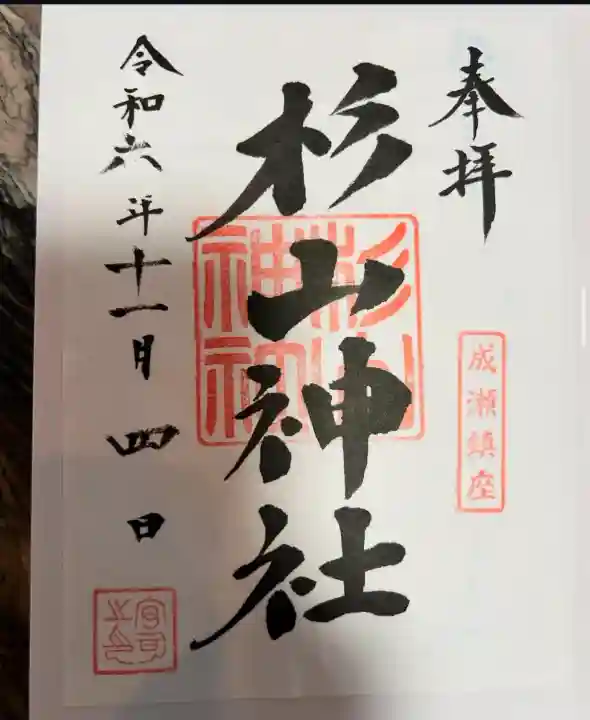 奉拝
成瀬鎮座
杉山神社
杉山神社
令和六年十一月四日
宮司之印